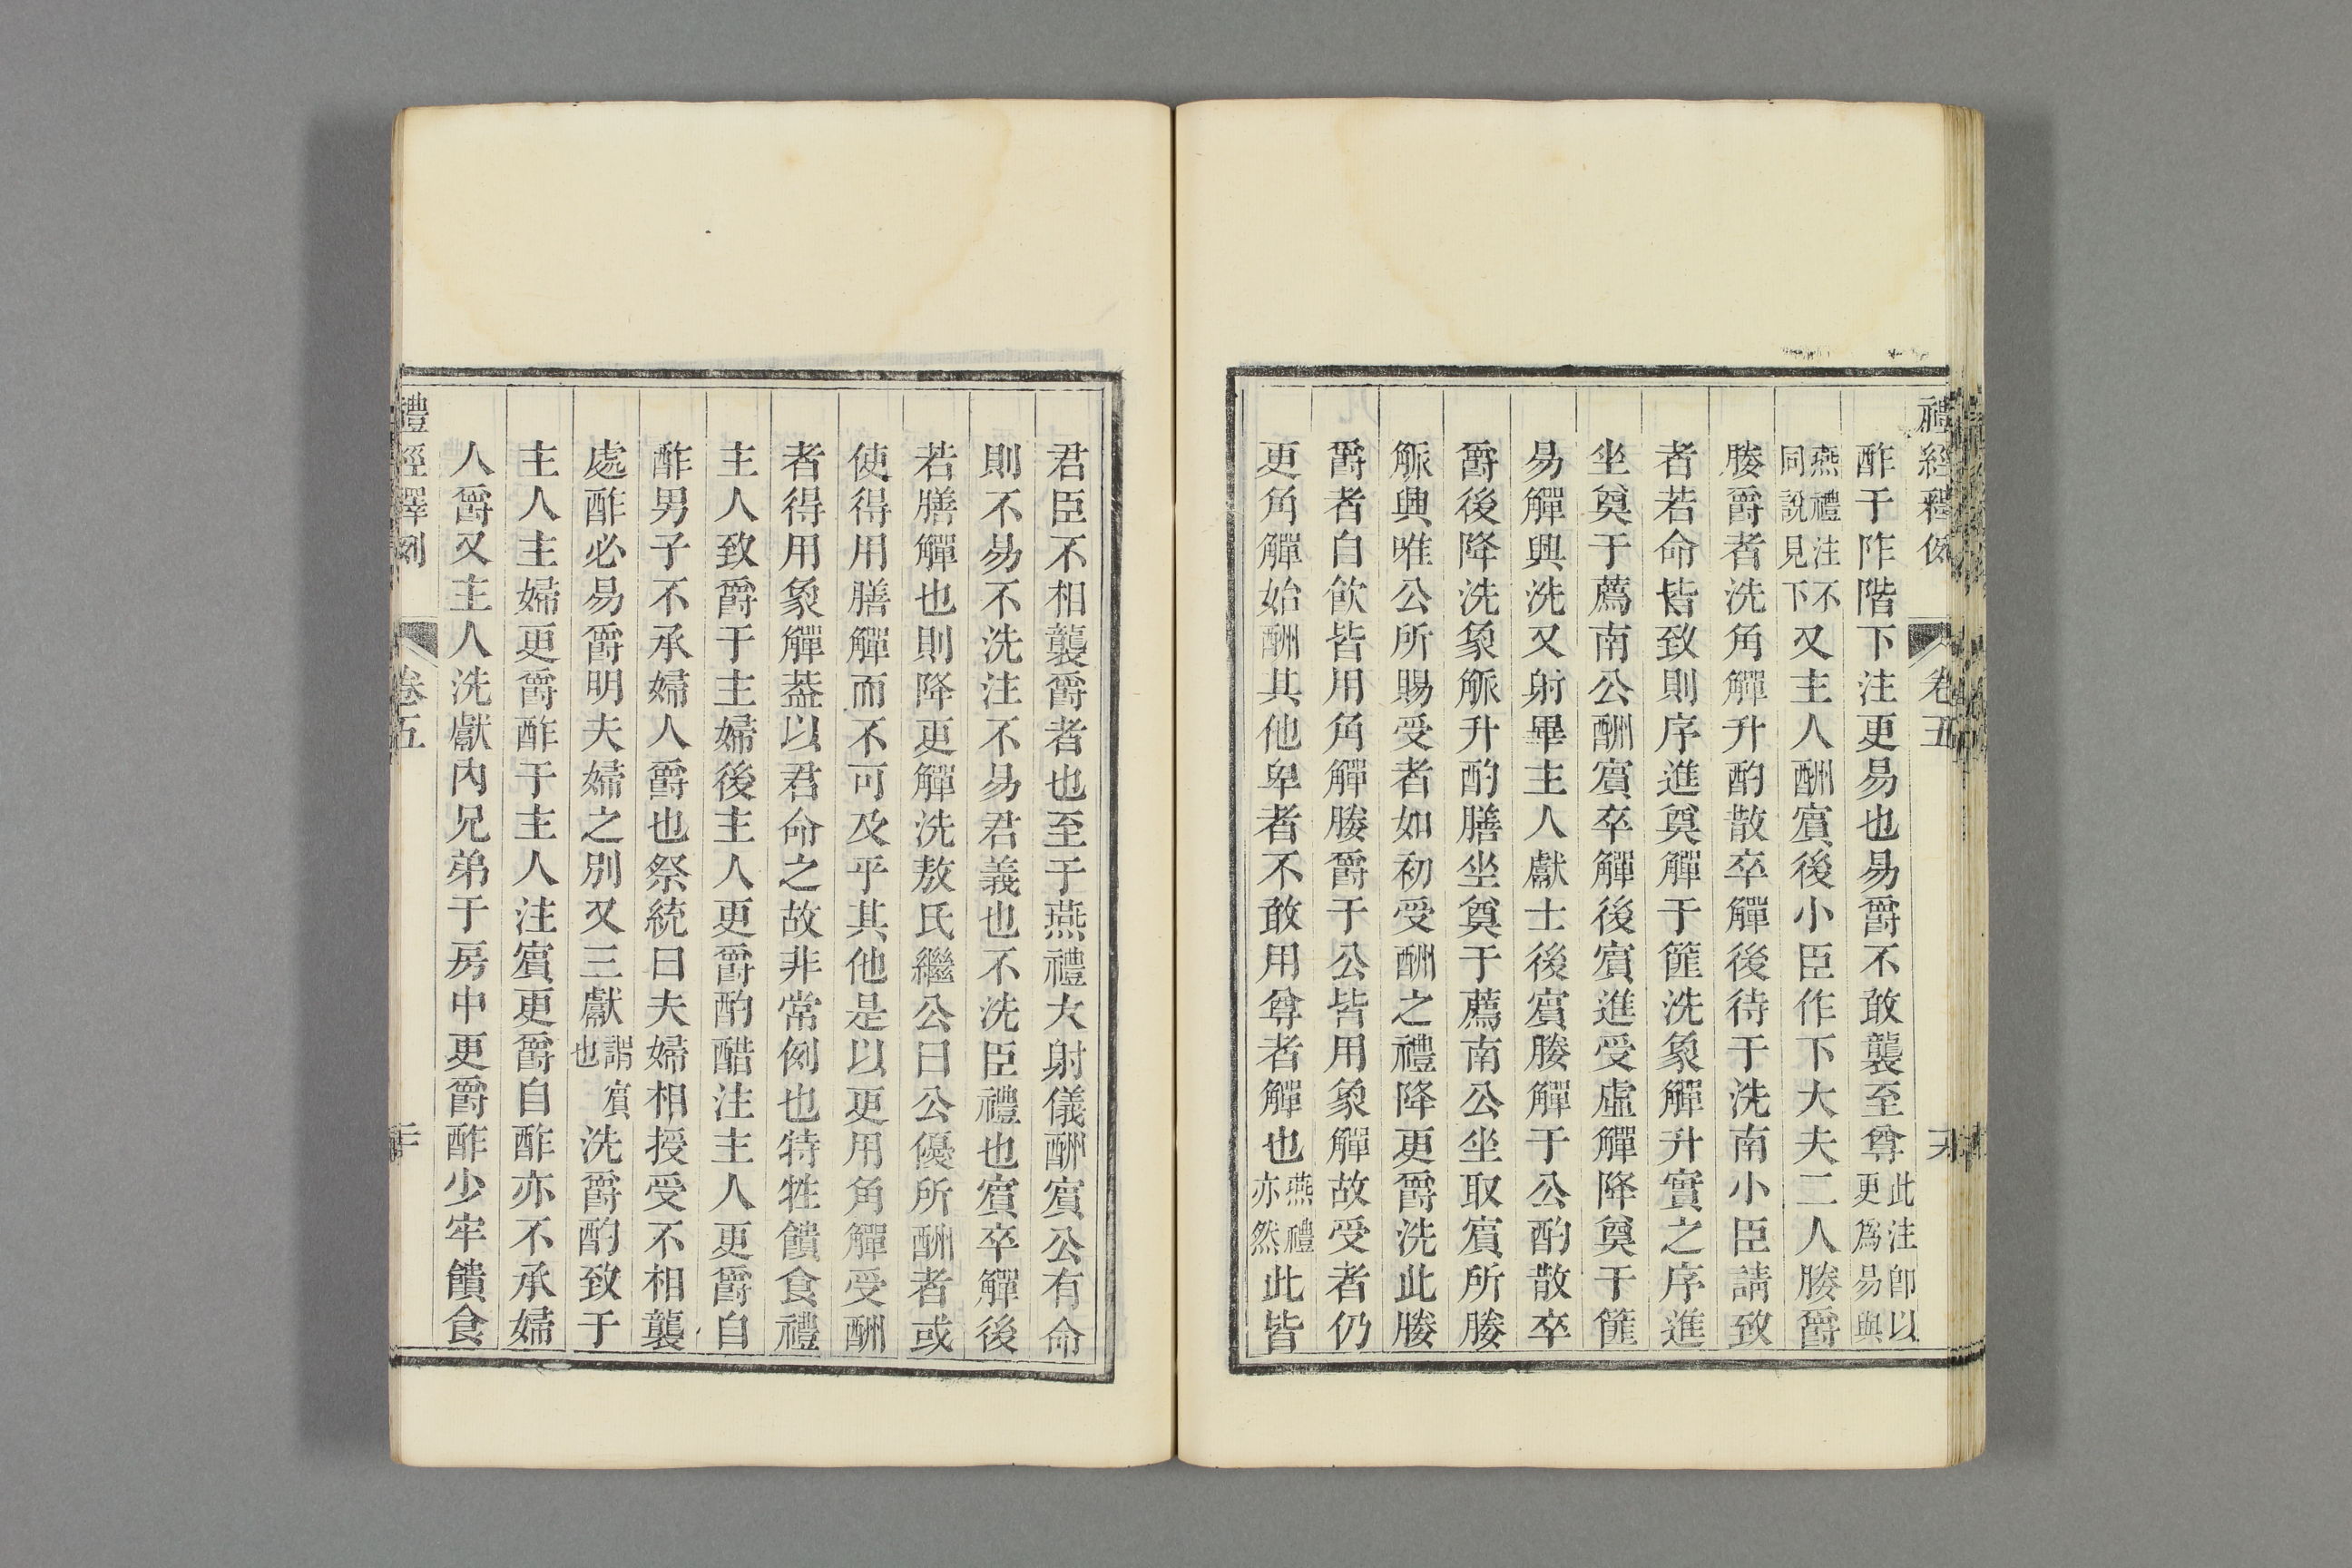 禮經釋例 卷五
酢于阼階下注更易也易爵不敢襲至尊此注卽以更爲易與
燕禮注不同說見下又主人酬賔後小臣作下大夫二人媵爵
媵爵者洗角觶升酌散卒觶後待于洗南小臣請致
者若命皆致則序進奠觶于篚洗象觶升實之序進
坐奠于薦南公酬賔卒觶後賔進受虛觶降奠于篚
易觶興洗又射畢主人獻士後賔媵觶于公酌散卒
爵後降洗象觚升酌膳坐奠于薦南公坐取賔所媵
觚興唯公所賜受者如初受酬之禮降更爵洗此媵
爵者自飲皆用角觶媵爵于公皆用象觶故受者仍
更角觶始酬其他卑者不敢用尊者觶也燕禮亦然此皆
君臣不相襲爵者也至于燕禮大射儀酬賔公有命
則不易不洗注不易君義也不洗臣禮也賔卒觶後
若膳觶也則降更觶洗敖氏繼公曰公優所酬者或
使得用膳觶而不可及乎其他是以更用角觶受酬
者得用象觶葢以君命之故非常例也特牲饋食禮
主人致爵于主婦後主人更爵酌醋注主人更爵自
酢男子不承婦人爵也祭統曰夫婦相授受不相襲
處酢必易爵明夫婦之別又三獻謂賔也洗爵酌致于
主人主婦更爵酢于主人注賔更爵自酢亦不承婦
人爵又主人洗獻內兄弟于房中更爵酢少牢饋食
禮經釋例 卷五